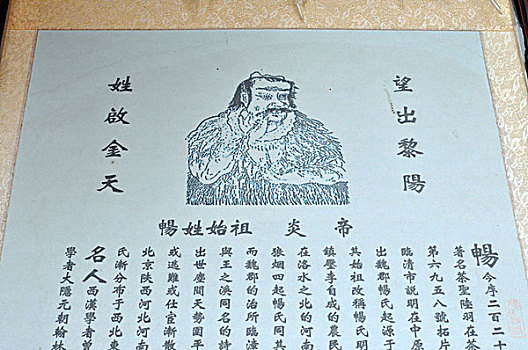 望出黎陽
姓啟金天
暢姓始祖 炎帝
暢 今序二百二十
著名茶聖陸羽在茶
第六九五八號拓片
臨清市説明在中原
出魏郡暢氏起源于
其始祖改稱暢氏明
鎮壓李自成的農民
在洛水之北的河南
狼烟四起暢氏同其
而魏郡的治所臨漳
與王之涣同名的詩
出世塵間天勢圖平
或逃難或仕宦漸散
北京陝西河北河南
氏漸分布于西北東
名人 西漢學者曾
學者大隱元朝翰林